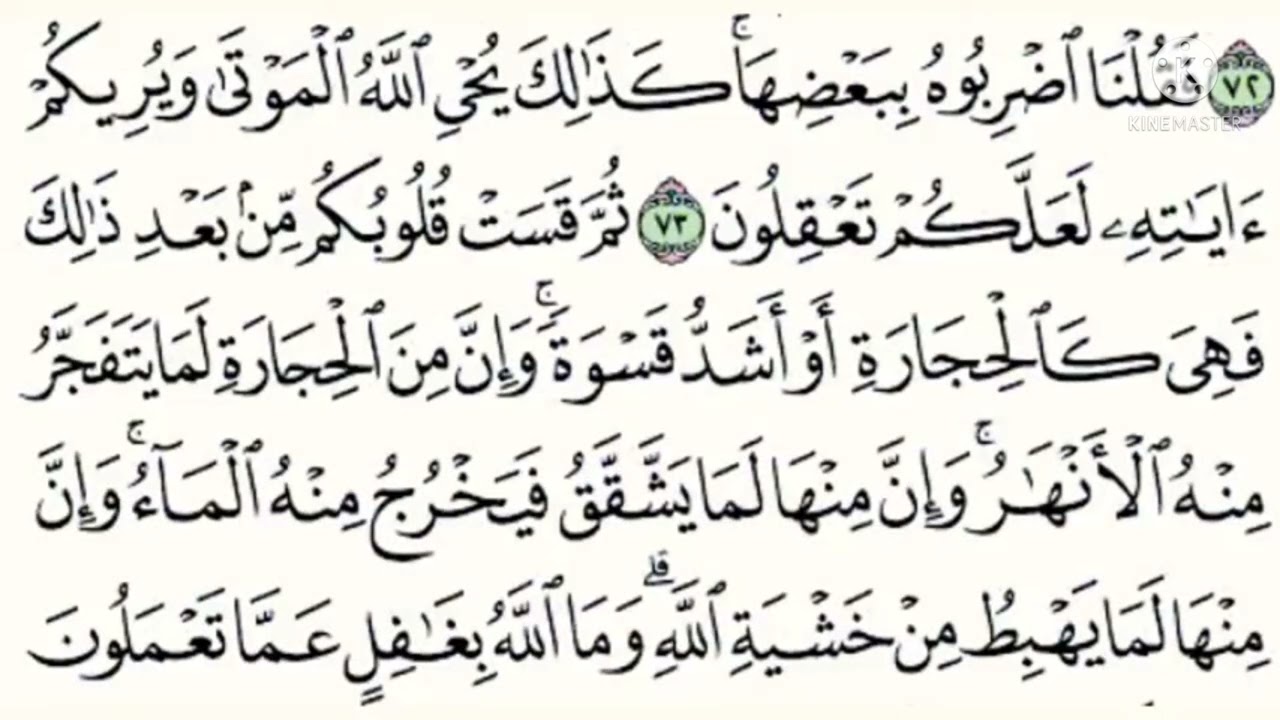 ٧٢ فَقُلْنَا ٱضْرِبُوهُ بِبَعْضِهَاۚ كَذَٰلِكَ يُحْيِ ٱللَّهُ ٱلْمَوْتَىٰ وَيُرِيكُمْ
KINEMASTER
ءَايَٰتِهِۦ لَعَلَّكُمْ تَعْقِلُونَ ٧٣ ثُمَّ قَسَتْ قُلُوبُكُم مِّنۢ بَعْدِ ذَٰلِكَ
فَهِىَ كَٱلْحِجَارَةِ أَوْ أَشَدُّ قَسْوَةًۚ وَإِنَّ مِنَ ٱلْحِجَارَةِ لَمَا يَتَفَجَّرُ
مِنْهُ ٱلْأَنْهَٰرُۚ وَإِنَّ مِنْهَا لَمَا يَشَّقَّقُ فَيَخْرُجُ مِنْهُ ٱلْمَآءُۚ وَإِنَّ
مِنْهَا لَمَا يَهْبِطُ مِنْ خَشْيَةِ ٱللَّهِۗ وَمَا ٱللَّهُ بِغَٰفِلٍ عَمَّا تَعْمَلُونَ